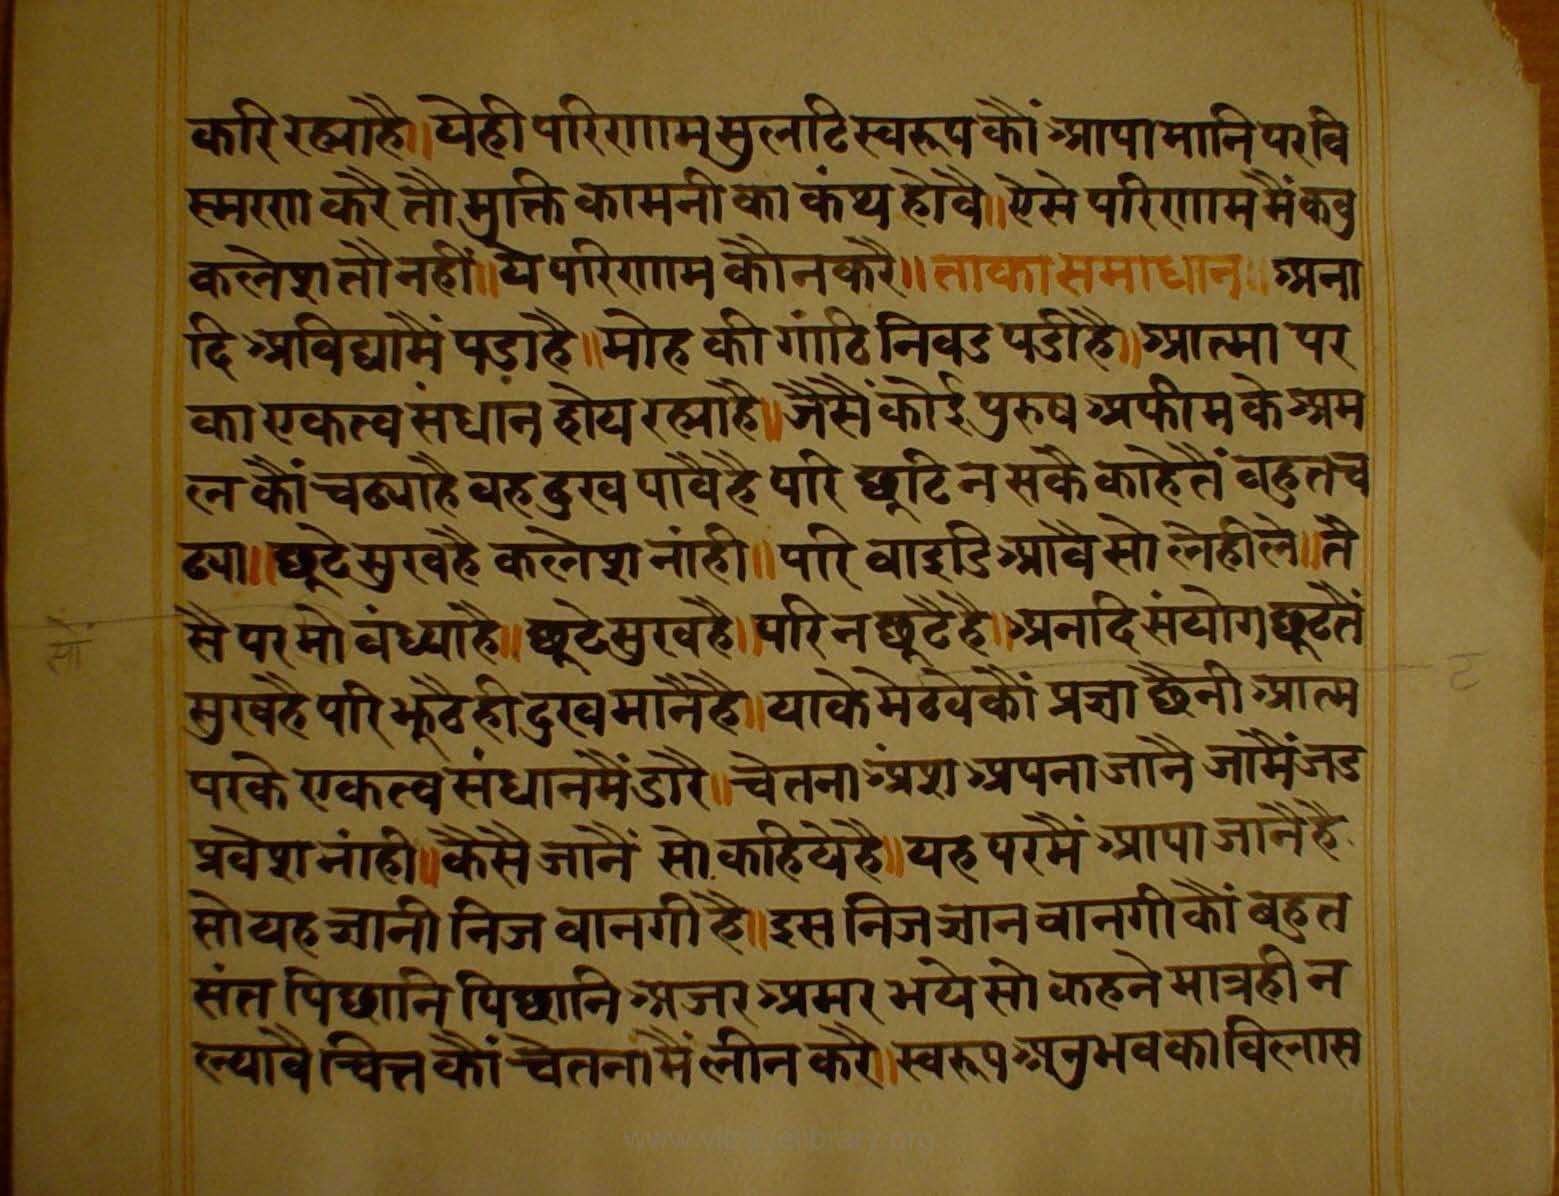 करि रह्याहै॥ येही परिणाम सुलटि स्वरूप कौं आपा मानि पर वि
स्मरण करै तौ मुक्ति कामनी का कंथ होवै॥ ऐसे परिणाम मैं कबु
कलेश तौ नहीं॥ ये परिणाम कौन करै॥ ताका समाधान॥ अना
दि अविद्यामैं पडाहै॥ मोह की गांठि निवड पडीहै॥ आत्मा पर
का एकत्व संधान होय रह्याहै॥ जैसैं कोई पुरुष अफीम के अम
ल कौं चढ्याहै वह दुख पावैहै परि छूटि न सकै काहेतैं वहुत च
ढ्या॥ छूटे सुखहै कलेश नांही॥ परि वाइडि आवै सो लेहीले॥ तै
सै पर मो वंध्याहै॥ छूटे सुखहै॥ परि न छूटैहै॥ अनादि संयोग छूटतैं
सुखहै परि झूठैही दुख मानैहै॥ याके मेटवेकौं प्रज्ञा छैनी आत्म
परके एकत्व संधानमैं डारै॥ चेतना अंश अपना जानै जामैं जड
प्रवेश नांही॥ कैसै जानैं सो कहियेहै॥ यह परमैं आपा जानैहै
सो यह ज्ञानी निज वानगी है॥ इस निज ज्ञान वानगी कौं बहुत
संत पिछानि पिछानि अजर अमर भये सो कहने मात्रही न
ल्यावै चित्त कौं चेतना मैं लीन करै॥ स्वरूप अनुभव का विलास
सां
ट